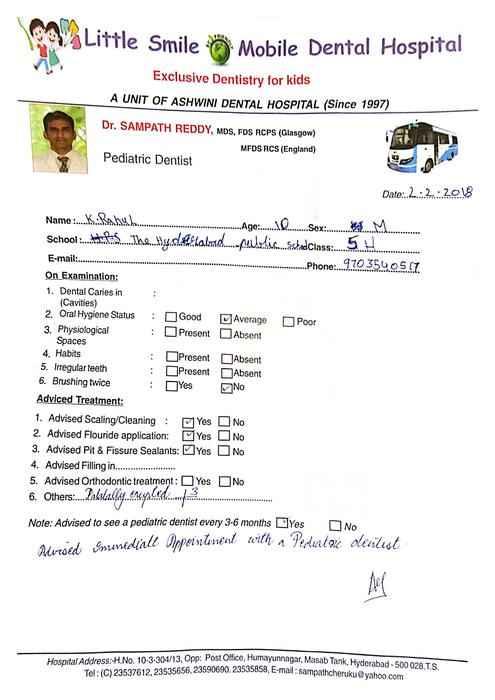 Little Smile Mobile Dental Hospital
Exclusive Dentistry for kids
A UNIT OF ASHWINI DENTAL HOSPITAL (Since 1997)
Dr. SAMPATH REDDY, MDS, FDS RCPS (Glasgow)
MFDS RCS (England)
Pediatric Dentist
Date: 2-2-2018
Name: K. Rahul Age: 10 Sex: M
School: HPS The Hyderabad public school Class: 5 H
E-mail: Phone:
On Examination:
1. Dental Caries in :
(Cavities)
2. Oral Hygiene Status : Good ✓ Average Poor
3. Physiological : Present Absent
Spaces
4. Habits : Present Absent
5. Irregular teeth : Present Absent
6. Brushing twice : Yes ✓ No
Adviced Treatment:
1. Advised Scaling/Cleaning : ✓ Yes No
2. Advised Flouride application: ✓ Yes No
3. Advised Pit & Fissure Sealants: ✓ Yes No
4. Advised Filling in
5. Advised Orthodontic treatment : Yes No
6. Others: Partially erupted 3
Note: Advised to see a pediatric dentist every 3-6 months ✓ Yes No
Advised Immediate Appointment with a Pediatric dentist
Hospital Address:-H.No. 10-3-304/13, Opp: Post Office, Humayunnagar, Masab Tank, Hyderabad - 500 028.T.S.
Tel : (C) 23537612, 23535656, 23590690, 23535858, E-mail : sampathcheruku@yahoo.com